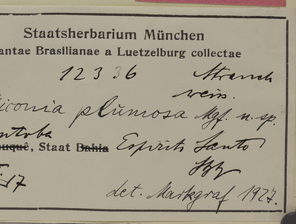 Staatsherbarium München
antae Brasilianae a Luetzelburg collectae
12336 Strauch
iconia plumosa Mgf. n. sp.
uqué, Staat Bahia Espirito Santo
17
det. Markgraf 1927.